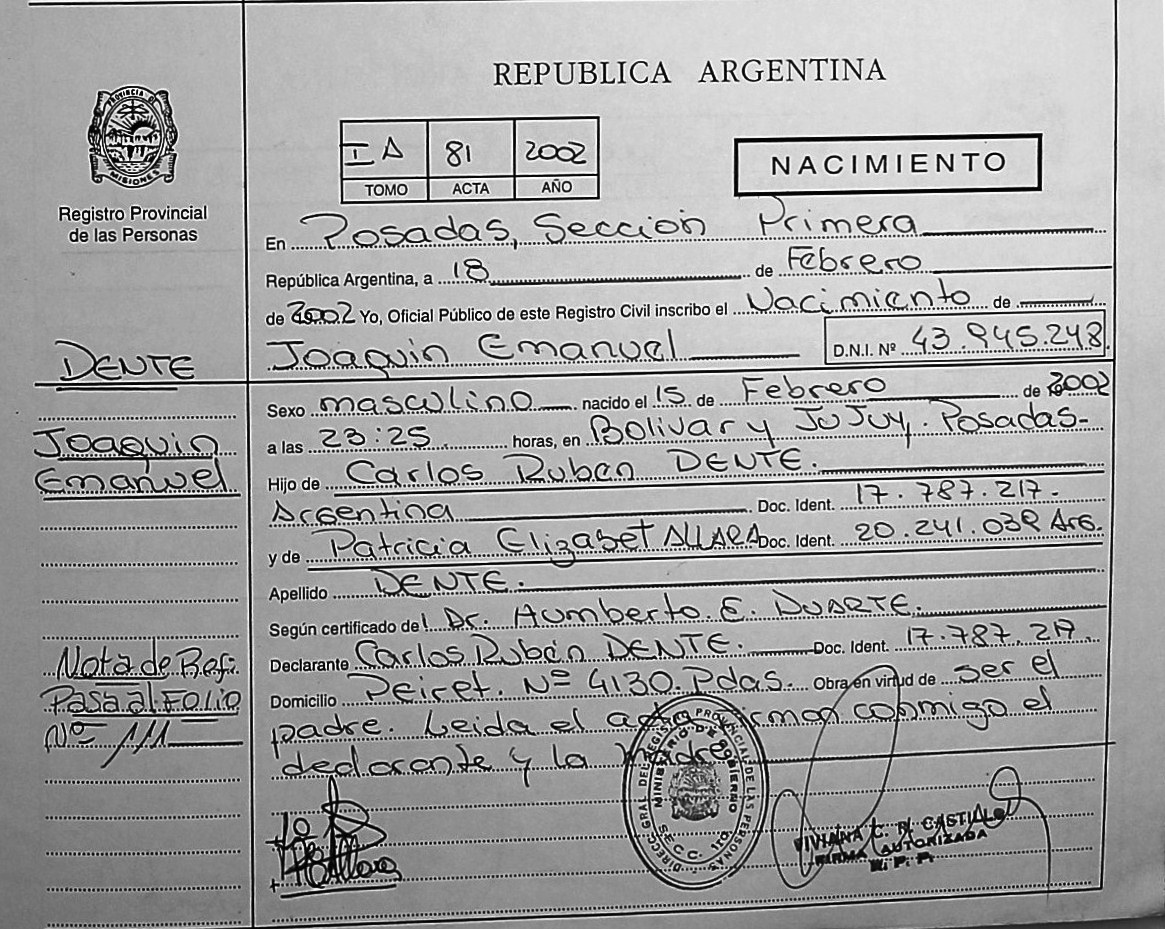 REPUBLICA ARGENTINA
PROVINCIA DE MISIONES
Registro Provincial
de las Personas
I A 81 2002
TOMO ACTA AÑO
NACIMIENTO
En Posadas, Sección Primera
República Argentina, a 18 de Febrero
de 2002 Yo, Oficial Público de este Registro Civil inscribo el Nacimiento de
Joaquin Emanuel D.N.I. Nº 43.945.248
DENTE
Joaquin
Emanuel
Sexo masculino nacido el 15 de Febrero de 2002
a las 23:25 horas, en Bolivar y JuJuy. Posadas-
Hijo de Carlos Rubén DENTE.
Argentina Doc. Ident. 17.787.217.
y de Patricia Elizabet ALLARA Doc. Ident. 20.241.038 Arg.
Apellido DENTE.
Según certificado del Dr. Humberto E. DUARTE.
Declarante Carlos Rubén DENTE. Doc. Ident. 17.787.217.
Domicilio Peiret. Nº 4130. Pdas. Obra en virtud de ser el
padre. Leida el acta firman conmigo el
declarante y la madre
Nota de Ref:
Pasa al FOLIO
Nº 111
DIRECC. GRAL. DEL REGISTRO PROVINCIAL DE LAS PERSONAS
MINISTERIO DE GOBIERNO
SECC. 1RO
VIVIANA C. R. CASTILLO
FIRMA AUTORIZADA
R. P. P.